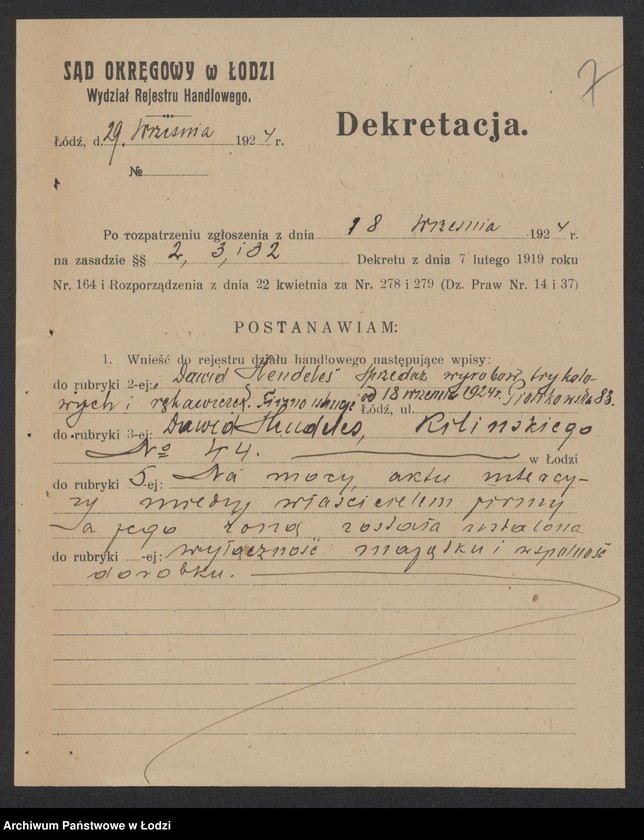 7
SĄD OKRĘGOWY w ŁODZI
Wydział Rejestru Handlowego.
Dekretacja.
Łódź, d. 29. Września 1924 r.
№
Po rozpatrzeniu zgłoszenia z dnia 18 Września 1924 r.
na zasadzie §§ 2, 3, i 32 Dekretu z dnia 7 lutego 1919 roku
Nr. 164 i Rozporządzenia z dnia 22 kwietnia za Nr. 278 i 279 (Dz. Praw Nr. 14 i 37)
POSTANAWIAM:
1. Wnieść do rejestru działu handlowego następujące wpisy:
do rubryki 2-ej: Dawid Hendeles Sprzedaż wyrobów trykoto-
wych i rękawiczek. Firma istnieje od 18 września 1924 r. Piotrkowska 83.
Łódź, ul.
do rubryki 3-ej: Dawid Hendeles, Kilinskiego
№ 44. w Łodzi
do rubryki 5-ej: Na mocy aktu intercy-
zy między właścicielem firmy
a jego żoną została ustalona
do rubryki -ej: wyłączność majątku i wspólność
dorobku.
Archiwum Państwowe w Łodzi